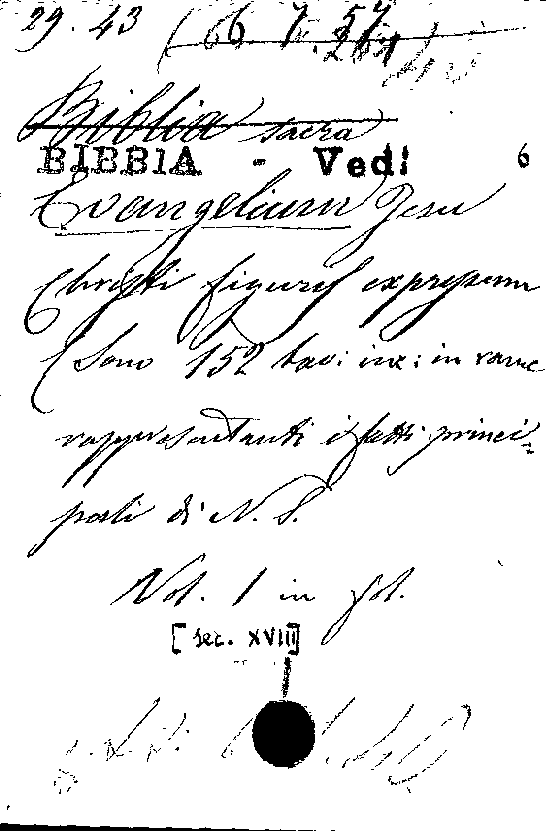 29. 43 (66. 7. 57
267)
Biblia sacra
BIBBIA - Vedi 6
Evangelium Jesu
Christi figuris expressum
(Sono 152 tav: inc: in rame
rappresentanti i fatti princi-
pali di N. S.
Vol. 1 in fol.
[sec. XVIII]